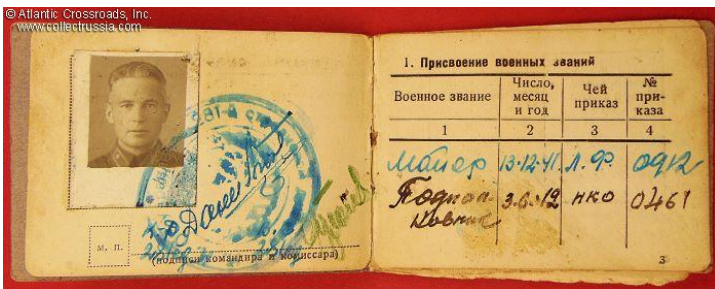 © Atlantic Crossroads, Inc.
www.collectrussia.com
м. п.
(подписи командира и комиссара)
3
1. Присвоение военных званий
Военное звание
Число, месяц и год
Чей приказ
№ при-каза
1 2 3 4
Майор 13.12.41 Л.Ф. 0912
Подпол-
ковник 3.6.42 НКО 0461